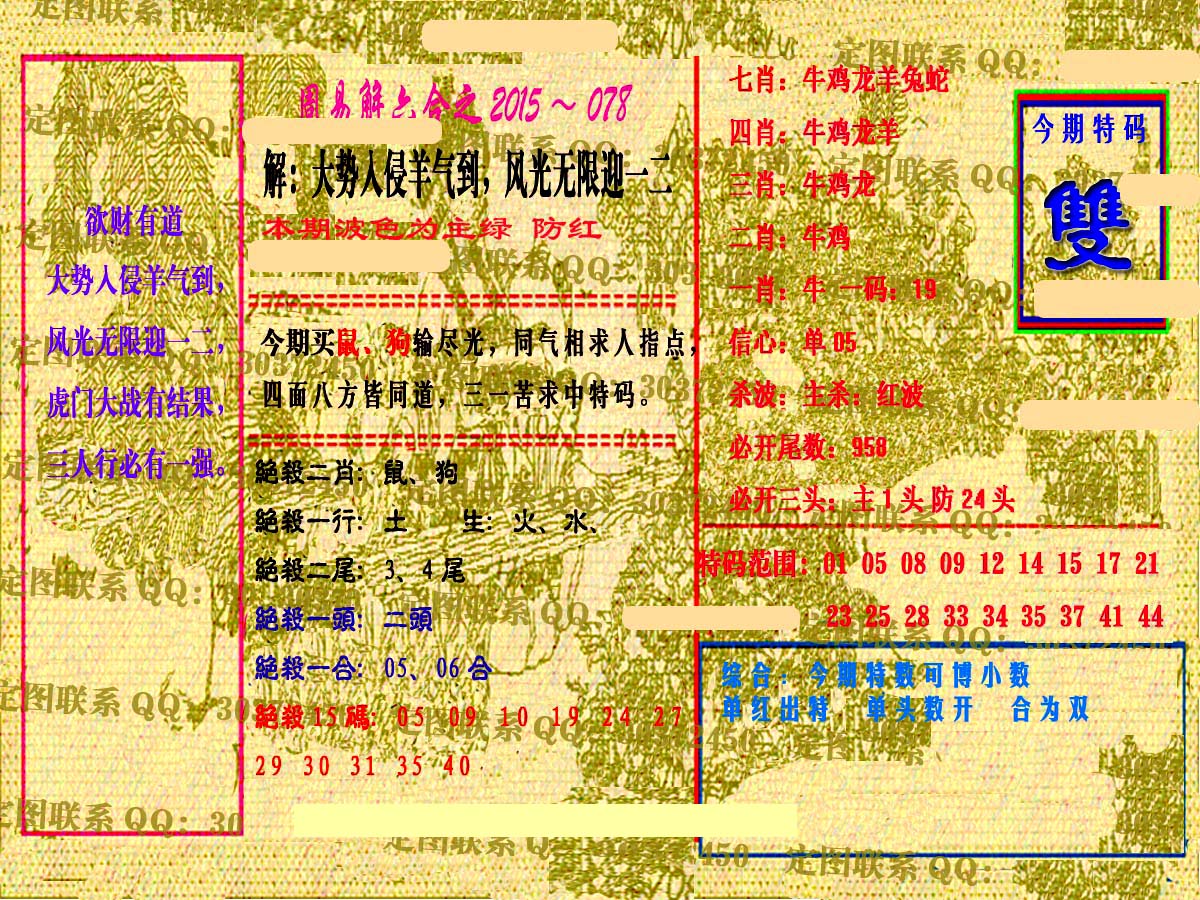 周易解六合之 2015～078
解：大势人侵羊气到，风光无限迎一二
本期波色为主绿 防红
欲财有道
大势人侵羊气到，
风光无限迎一二，
虎门大战有结果，
三人行必有一强。
今期买鼠、狗输尽光，同气相求人指点，
四面八方皆同道，三一苦求中特码。
絕殺二肖：鼠、狗
絕殺一行：土 生：火、水、
絕殺二尾：3、4 尾
絕殺一頭：二頭
絕殺一合：05、06 合
絕殺 15 碼：05 09 10 19 24 27
29 30 31 35 40
七肖：牛鸡龙羊兔蛇
四肖：牛鸡龙羊
三肖：牛鸡龙
二肖：牛鸡
一肖：牛 一码：19
信心：单 05
杀波：主杀：红波
必开尾数：958
必开三头：主 1 头 防 24 头
今期特码
雙
特码范围：01 05 08 09 12 14 15 17 21
23 25 28 33 34 35 37 41 44
综合：今期特数可博小数
单红出特，单头数开 合为双
定图联系 QQ：